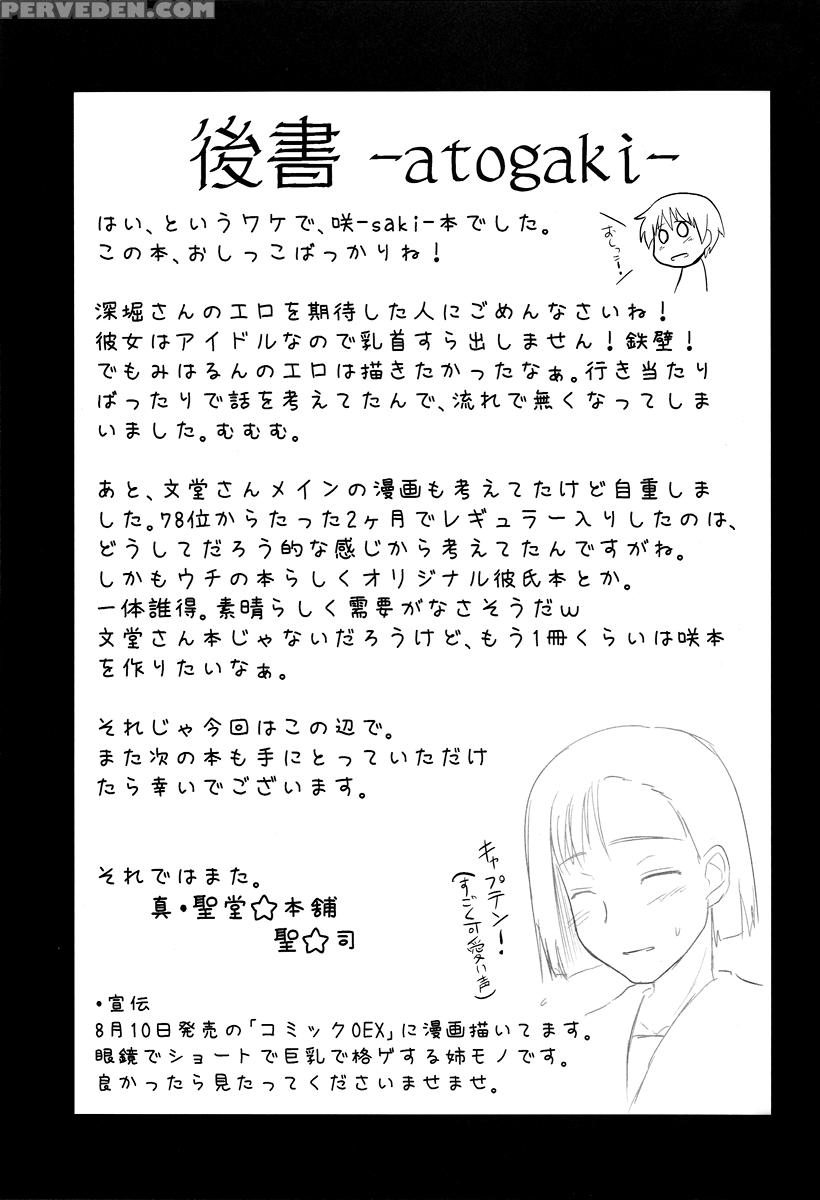 PERVEDEN.COM
後書 -atogaki-
はい、というワケで、咲-saki-本でした。
この本、おしっこばっかりね！
おしっこー！
深堀さんのエロを期待した人にごめんなさいね！
彼女はアイドルなので乳首すら出しません！鉄壁！
でもみはるんのエロは描きたかったなぁ。行き当たり
ばったりで話を考えてたんで、流れで無くなってしま
いました。むむむ。
あと、文堂さんメインの漫画も考えてたけど自重しま
した。78位からたった2ヶ月でレギュラー入りしたのは、
どうしてだろう的な感じから考えてたんですがね。
しかもウチの本らしくオリジナル彼氏本とか。
一体誰得。素晴らしく需要がなさそうだw
文堂さん本じゃないだろうけど、もう1冊くらいは咲本
を作りたいなぁ。
それじゃ今回はこの辺で。
また次の本も手にとっていただけ
たら幸いでございます。
キャプテン！
(すごく可愛い声)
それではまた。
真・聖堂☆本舗
聖☆司
・宣伝
8月10日発売の「コミック0EX」に漫画描いてます。
眼鏡でショートで巨乳で格ゲする姉モノです。
良かったら見たってくださいませませ。